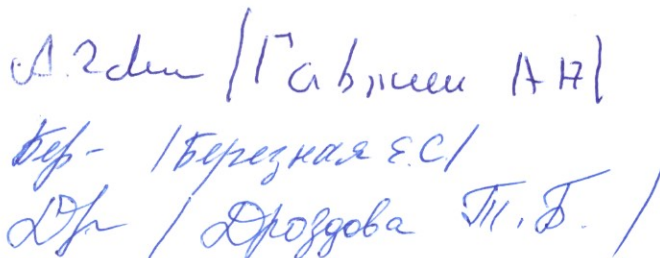 /Гавжин А Н/
Бер- /Березная Е.С/
Др /Дроздова Т.Б./